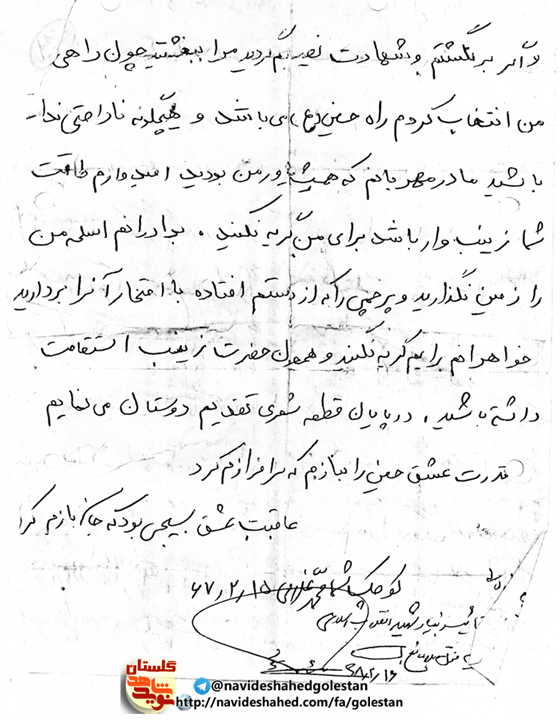 و اگر برنگشتم و شهادت نصیبم گردید مرا ببخشید چون راهی
من انتخاب کردم راه حسین (ع) می باشد و هیچگونه ناراحتی ندا-
باشید مادر مهربانم که همیشه یاور من بودید امیدوارم طاقت
شما زینب وار باشد برای من گریه نکنید . برادرانم اسلحه من
را زمین نگذارید و پرچمی را که از دستم افتاده با افتخار آنرا بردارید
خواهرانم برایم گریه نکنید و همچون حضرت زینب استقامت
داشته باشید . در پایان قطعه شعری تقدیم دوستان می نمایم
قدرت عشق حسین را بنازم که سرافرازم کرد
عاقبت عشق بسیجی بود که جانبازم کرد
کوچک شما محمد ۶۷/۲/۱۵
گلستان
نوید شاهد
@navideshahedgolestan
http://navideshahed.com/fa/golestan